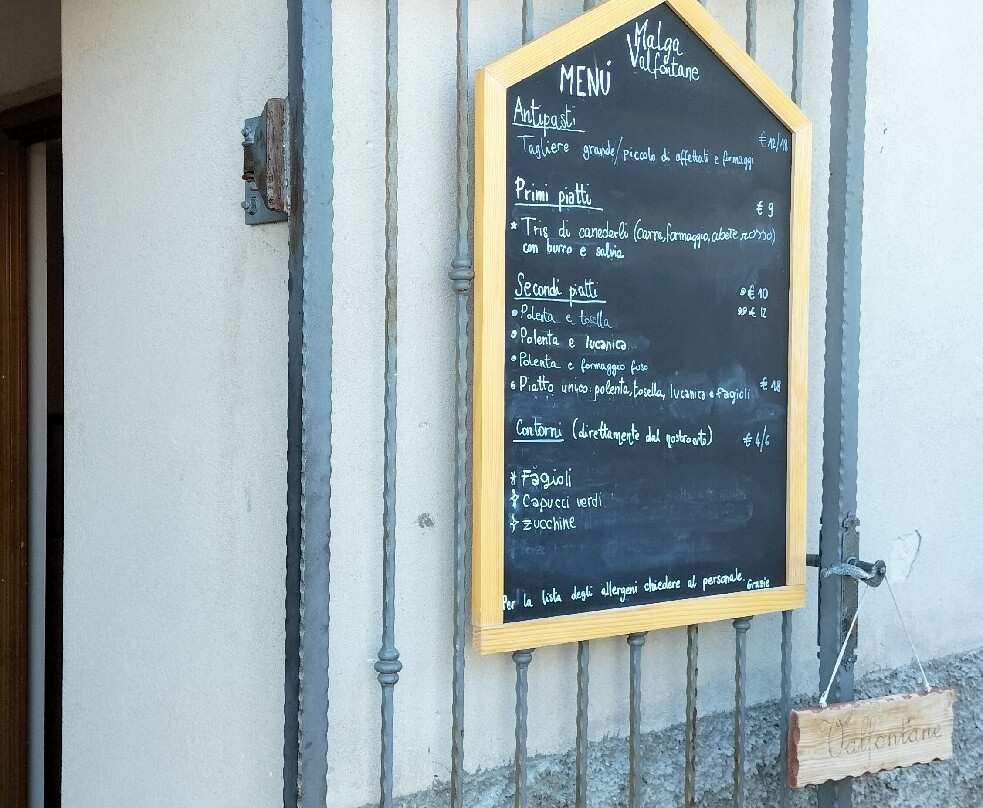 Malga
Valfontane
MENÚ
Antipasti
€ 12/18
Tagliere grande/piccolo di affettati e formaggi
Primi piatti
€ 9
* Tris di canederli (carne, formaggio, abete rosso)
con burro e salvia
Secondi piatti
€ 10
• Polenta e tosella
€ 12
• Polenta e lucanica
• Polenta e formaggio fuso
• Piatto unico: polenta, tosella, lucanica e fagioli € 18
Contorni (direttamente dal nostro orto) € 4/6
* Fagioli
Capucci verdi
Zucchine
Per la lista degli allergeni chiedere al personale. Grazie
Valfontane